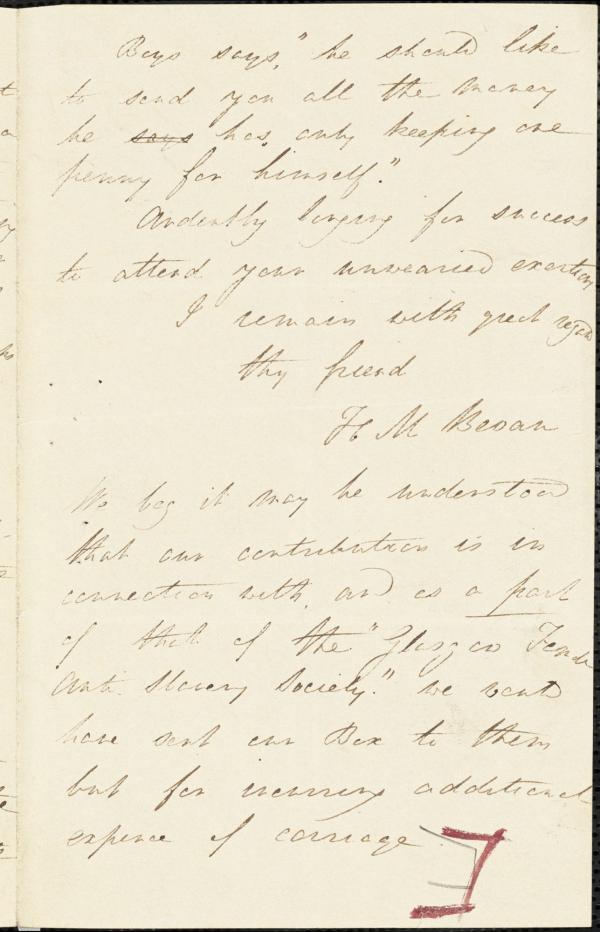 Boys says, "he should like
to send you all the money
he says has, only keeping one
penny for himself."
Ardently longing for success
to attend your unwearied exertions
I remain with great regard
thy friend
H M Bevan
We beg it may be understood
that our contribution is in
connection with, and as a part
of that of the "Glasgow Female
Anti Slavery Society." we would
have sent our Box to them
but for incurring additional
expence of carriage